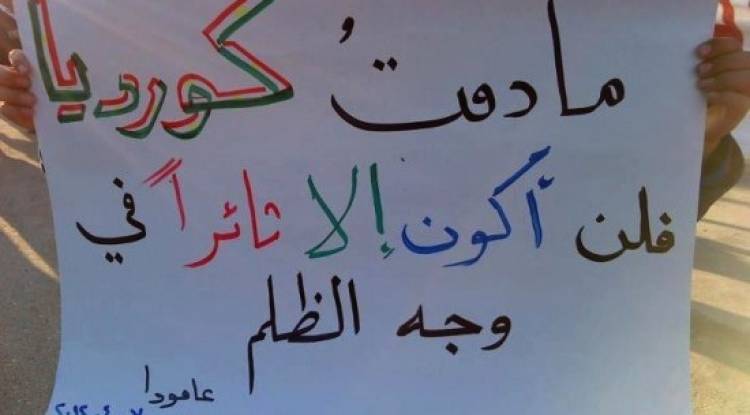 مادمتُ كورديا
فلن أكون إلا ثائراً في
وجه الظلم
عامودا